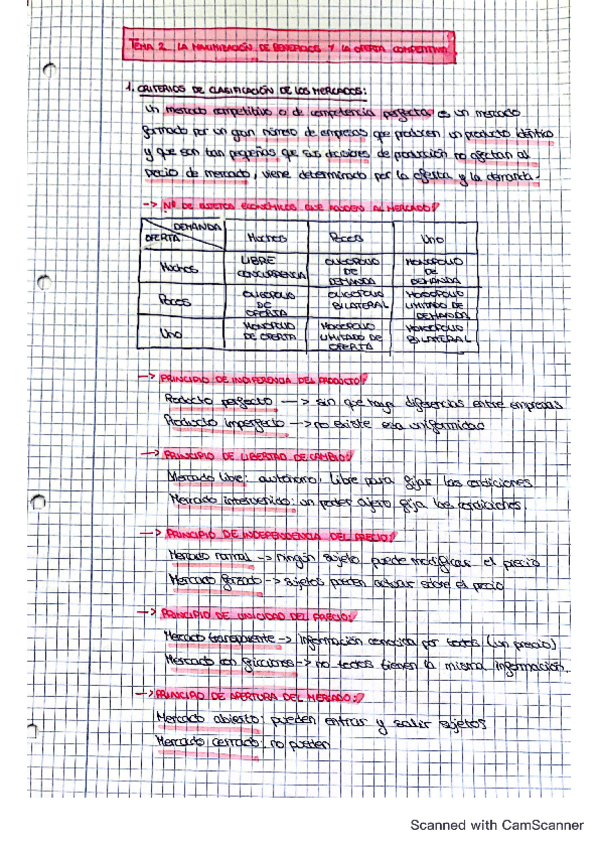 TEMA 2. LA MAXIMIZACIÓN DE BENEFICIOS Y LA OFERTA COMPETITIVA
1. CRITERIOS DE CLASIFICACIÓN DE LOS MERCADOS:
Un mercado competitivo o de competencia perfecta es un mercado
formado por un gran número de empresas que producen un producto idéntico
y que son tan pequeñas que sus decisiones de producción no afectan al
precio de mercado, viene determinado por la oferta y la demanda.
-> Nº DE SUJETOS ECONÓMICOS QUE ACUDEN AL MERCADO:
DEMANDA
OFERTA Muchos Pocos Uno
Muchos LIBRE CONCURRENCIA OLIGOPOLIO DE DEMANDA MONOPOLIO DE DEMANDA
Pocos OLIGOPOLIO DE OFERTA OLIGOPOLIO BILATERAL MONOPOLIO LIMITADO DE DEMANDA
Uno MONOPOLIO DE OFERTA MONOPOLIO LIMITADO DE OFERTA MONOPOLIO BILATERAL
-> PRINCIPIO DE INDIFERENCIA DEL PRODUCTO:
Producto perfecto -> sin que haya diferencias entre empresas
Producto imperfecto -> no existe esa uniformidad
-> PRINCIPIO DE LIBERTAD DE CAMBIO:
Mercado libre: autónomo, libre para fijar las condiciones
Mercado intervenido: un poder ajeno fija las condiciones.
-> PRINCIPIO DE INDEPENDENCIA DEL PRECIO:
Mercado normal -> ningún sujeto puede modificar el precio
Mercado forzado -> sujetos pueden actuar sobre el precio
-> PRINCIPIO DE UNICIDAD DEL PRECIO:
Mercado transparente -> Información conocida por todos (un precio)
Mercado con fricciones -> no todos tienen la misma información.
-> PRINCIPIO DE APERTURA DEL MERCADO:
Mercado abierto: pueden entrar y salir sujetos
Mercado cerrado: no pueden
Scanned with CamScanner